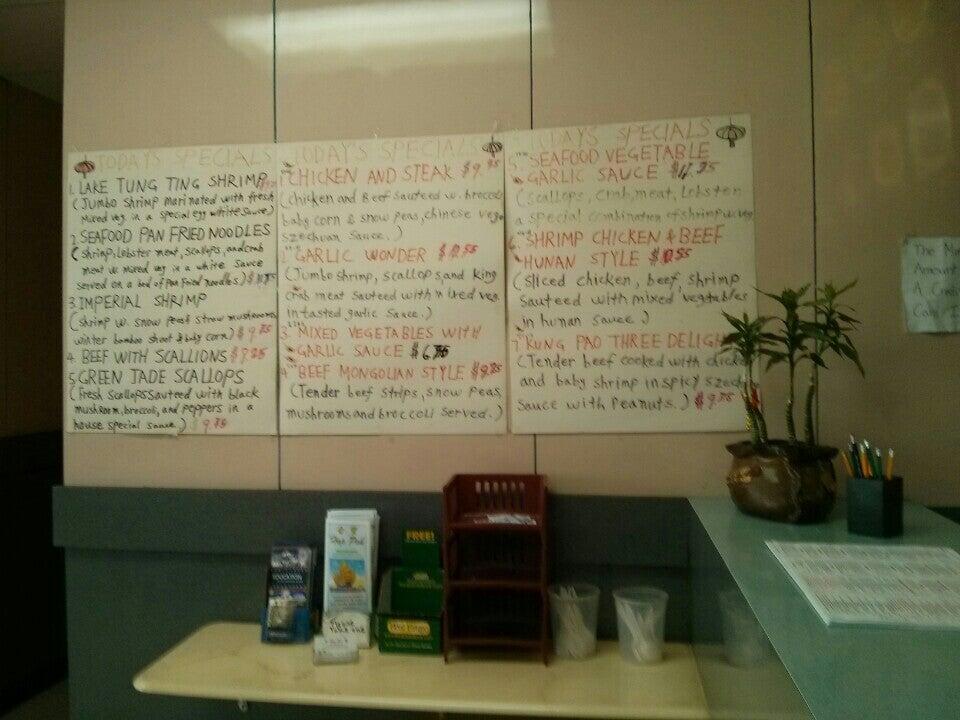 TODAYS SPECIALS
1. LAKE TUNG TING SHRIMP
(Jumbo shrimp marinated with fresh
mixed veg. in a special egg white sauce)
2. SEAFOOD PAN FRIED NOODLES
(shrimp, lobster meat, scallops, and crab
meat w. mixed veg in a white sauce
served on a bed of Pan Fried Noodles)
3. IMPERIAL SHRIMP
(shrimp w. snow peas straw mushrooms
winter bamboo shoot & baby corn)
4. BEEF WITH SCALLIONS
5. GREEN JADE SCALLOPS
(Fresh scallops sauteed with black
mushroom, broccoli, and peppers in a
house special sauce.)
TODAY'S SPECIALS
CHICKEN AND STEAK
(Chicken and Beef sauteed w. broccoli
baby corn & snow peas, chinese vege
szechuan sauce.)
GARLIC WONDER
(Jumbo shrimp, scallops, and king
crab meat sauteed with mixed veg.
in tasted garlic sauce.)
3. MIXED VEGETABLES WITH
GARLIC SAUCE
BEEF MONGOLIAN STYLE
(Tender beef strips, snow peas
mushrooms and broccoli served.)
TODAYS SPECIALS
SEAFOOD VEGETABLE
GARLIC SAUCE
(scallops, crab, meat, Lobster
a special combination of shrimp w. veg
SHRIMP CHICKEN & BEEF
HUNAN STYLE
(sliced chicken, beef, shrimp
sauteed with mixed vegetables
in hunan sauce)
KUNG PAO THREE DELIGHT
(Tender beef cooked with chicken
and baby shrimp in spicy szech
sauce with peanuts.) $9.95
The
Amount
A Cred
FREE!